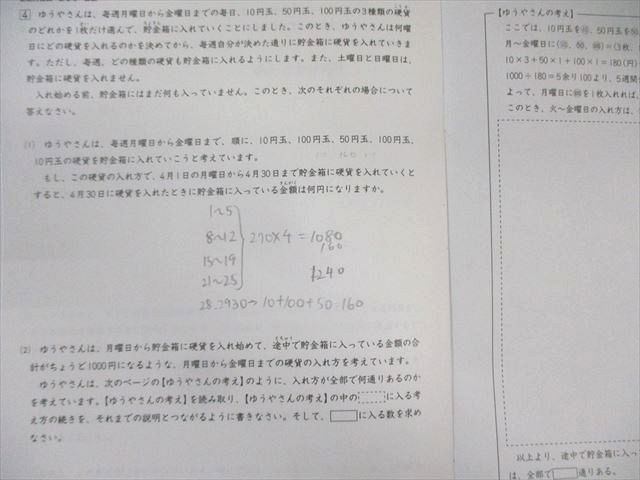 4 ゆうやさんは、毎週月曜日から金曜日までの毎日、10円玉、50円玉、100円玉の3種類の硬貨
のどれかを1枚だけ選んで、貯金箱に入れていくことにしました。このとき、ゆうやさんは何曜
日にどの硬貨を入れるのかを決めてから、毎週自分が決めた通りに貯金箱に入れていきま
す。ただし、毎週、どの種類の硬貨も貯金箱に入れるようにします。また、土曜日と日曜日は、
貯金箱に硬貨を入れません。
入れ始める前、貯金箱にはまだ何も入っていません。このとき、次のそれぞれの場合について
答えなさい。
(1) ゆうやさんは、毎週月曜日から金曜日まで、順に、10円玉、100円玉、50円玉、100円玉、
10円玉の硬貨を貯金箱に入れていこうと考えています。
もし、この硬貨の入れ方で、4月1日の月曜日から4月30日まで貯金箱に硬貨を入れていくと
すると、4月30日に硬貨を入れたときに貯金箱に入っている金額は何円になりますか。
1~5
8~12 270×4=1080
160
15~19
1240
21~25
28.2930→10+100+50=160
(2) ゆうやさんは、月曜日から貯金箱に硬貨を入れ始めて、途中で貯金箱に入っている金額の合
計がちょうど1000円になるような、月曜日から金曜日までの硬貨の入れ方を考えています。
ゆうやさんは、次のページの【ゆうやさんの考え】のように、入れ方が全部で何通りあるのか
を考えています。【ゆうやさんの考え】を読み取り、【ゆうやさんの考え】の中の に入る考
え方の続きを、それまでの説明とつながるように書きなさい。そして、 に入る数を求め
なさい。
【ゆうやさんの考え】
ここでは、10円玉を⑩、50円玉
月～金曜日に(⑩、㊿、
10×3+50×1+100×1=180(円)
1000÷180=5余り100より、5週間
よって、月曜日に を1枚入れれば、
このとき、火～金曜日の入れ方は、
以上より、途中で貯金箱に入っ
は、全部で 通りある。